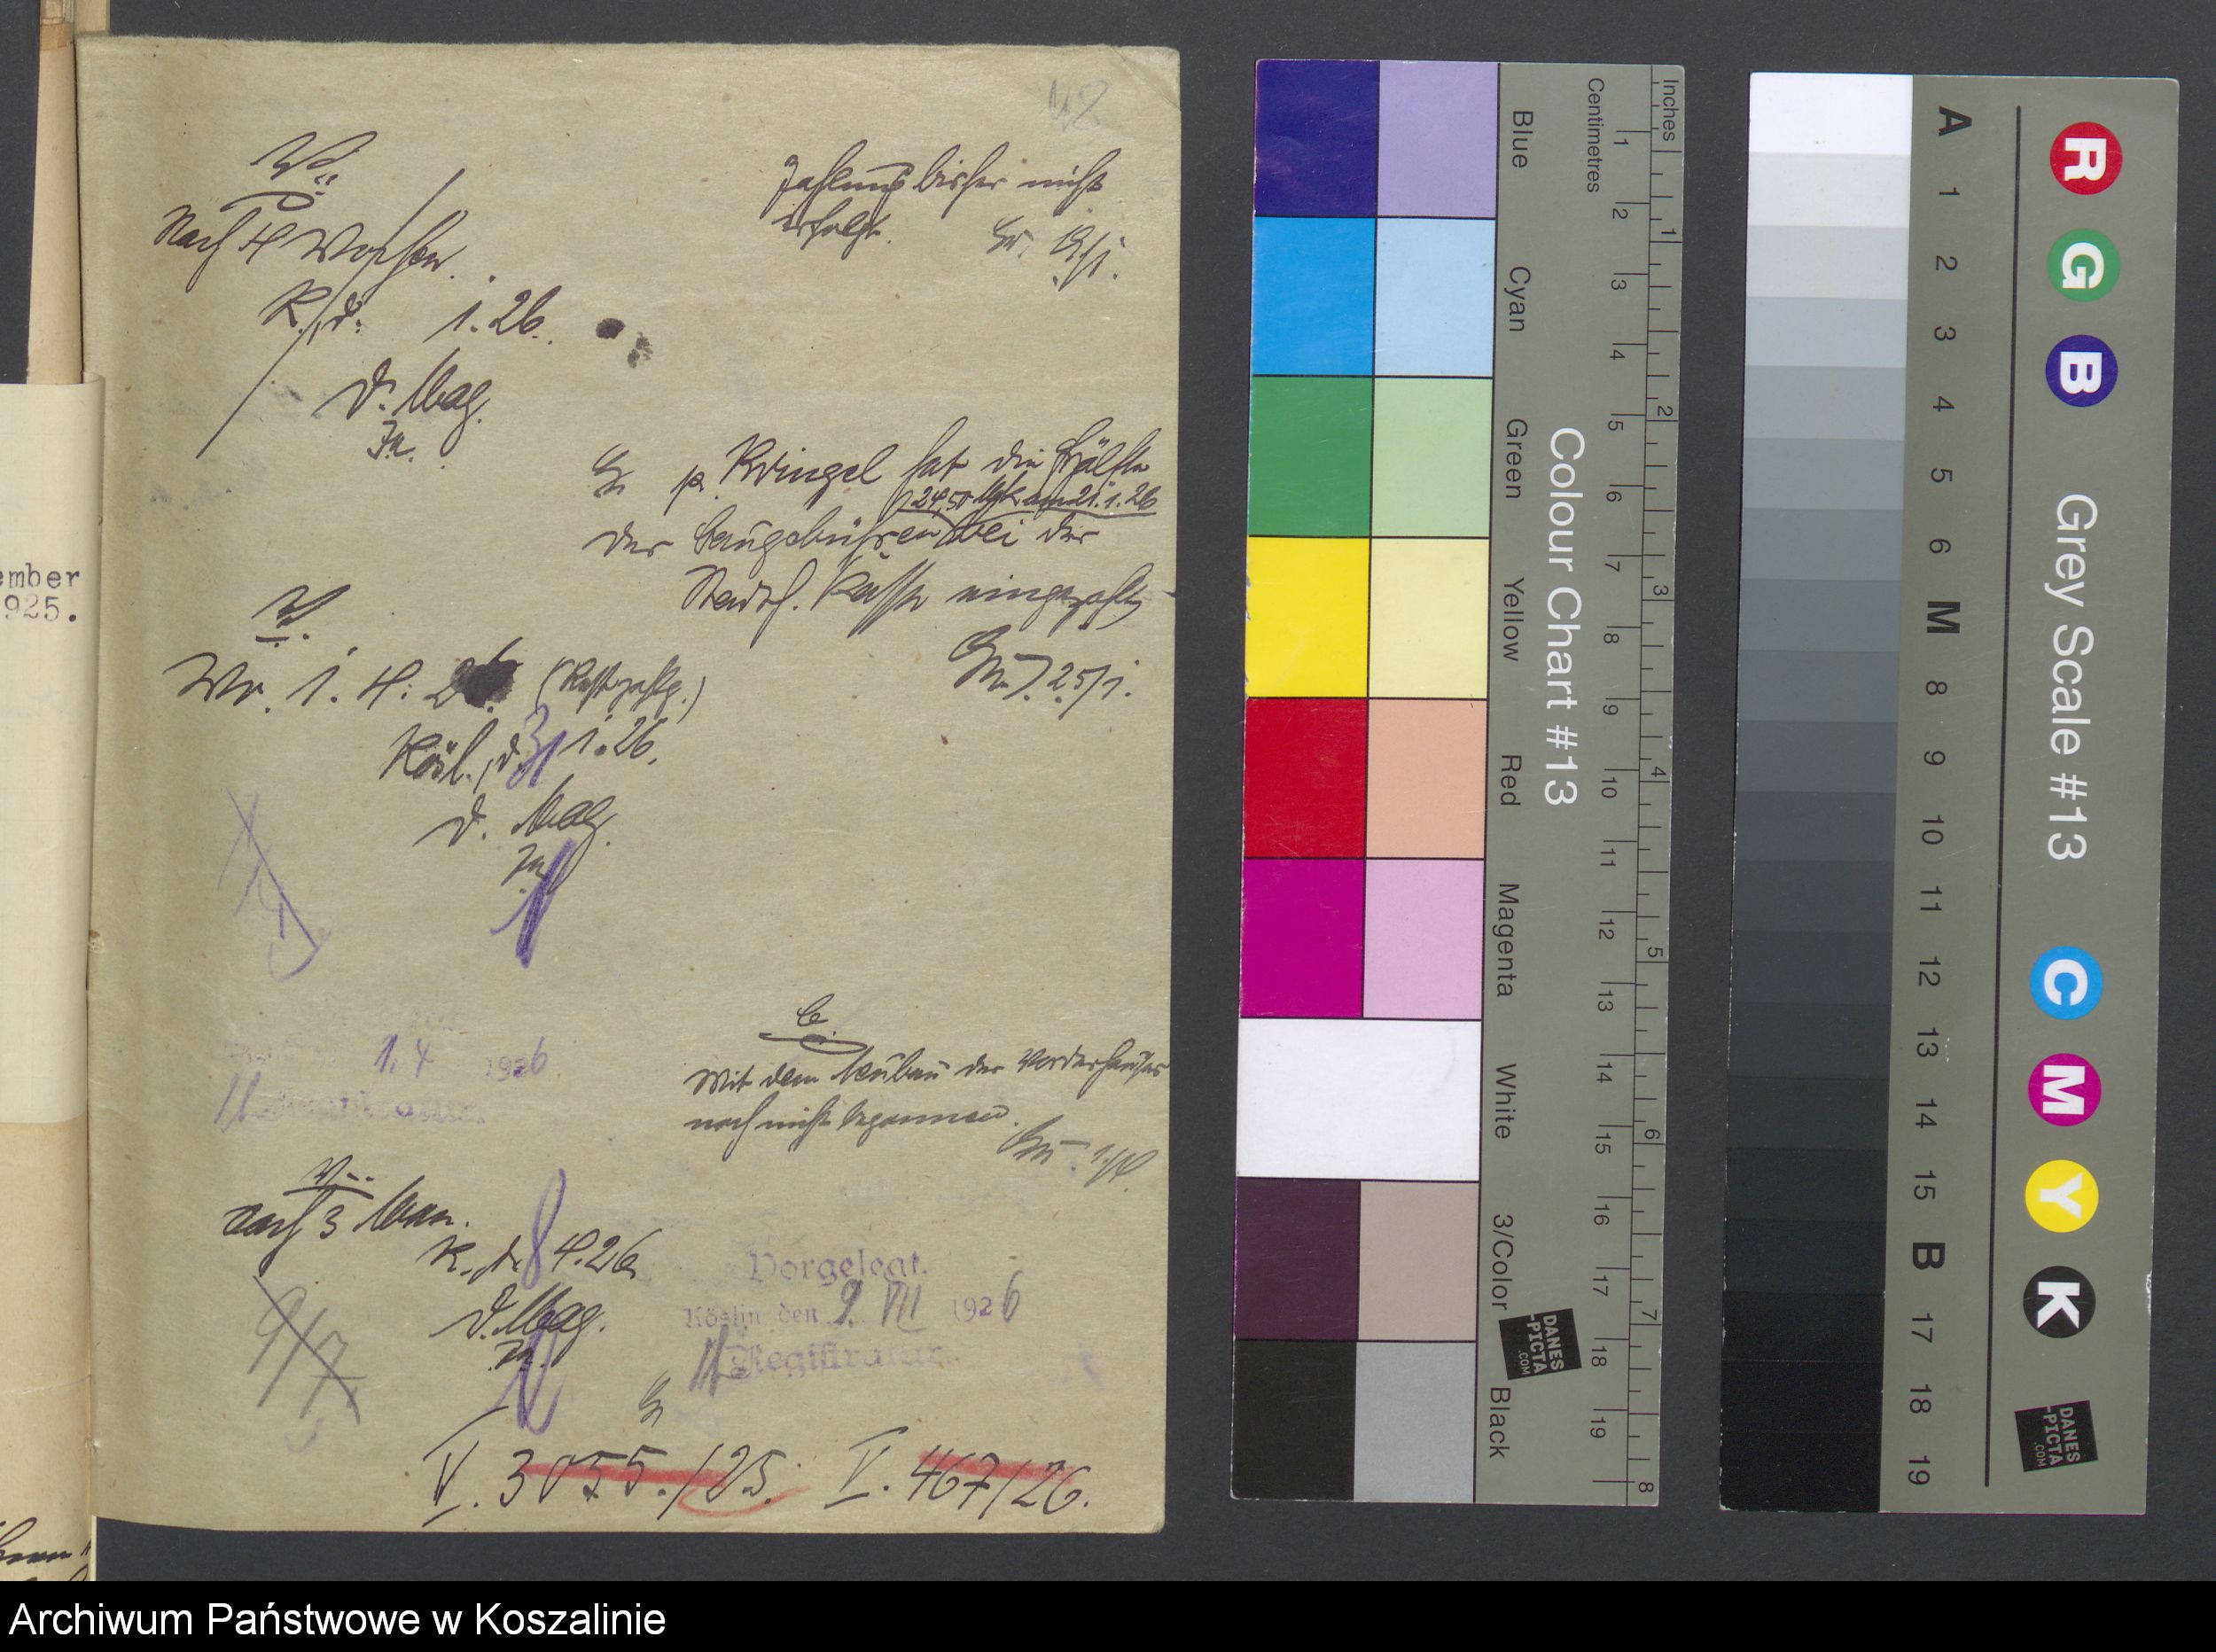 42
V.
Nach 4 Wochen.
K., d. 1. 26.
D. Mag.
Zahlung bisher nicht
erfolgt.
p. Kringel hat die Hälfte
24,50 Mk am 21.1.26
der Baugebühren bei der
Stadth. Kasse eingezahlt
25/1.
ember
925.
V.
Wv. 1. 4. 26. (Restzahlg.)
Kösl., d. 31 1. 26.
D. Mag.
1.4 1926.
Mit dem Neubau des Vorderhauses
noch nicht begonnen.
1/4.
V.
nach 3 Mon.
K., d. 8 4. 26.
D. Mag.
9/7
Vorgelegt.
Köslin, den 9. VII 1926
Registratur.
V. 3055./25. V. 467/26.
Blue
Cyan
Green
Yellow
Red
Magenta
White
3/Color
Black
Colour Chart #13
Centimetres
1 2 3 4 5 6 7 8 9 10 11 12 13 14 15 16 17 18 19
Inches
1 2 3 4 5 6 7 8
DANES
-PICTA
.COM
A 1 2 3 4 5 6 M 8 9 10 11 12 13 14 15 B 17 18 19
R G B
Grey Scale #13
C M Y K
DANES
-PICTA
.COM
Archiwum Państwowe w Koszalinie